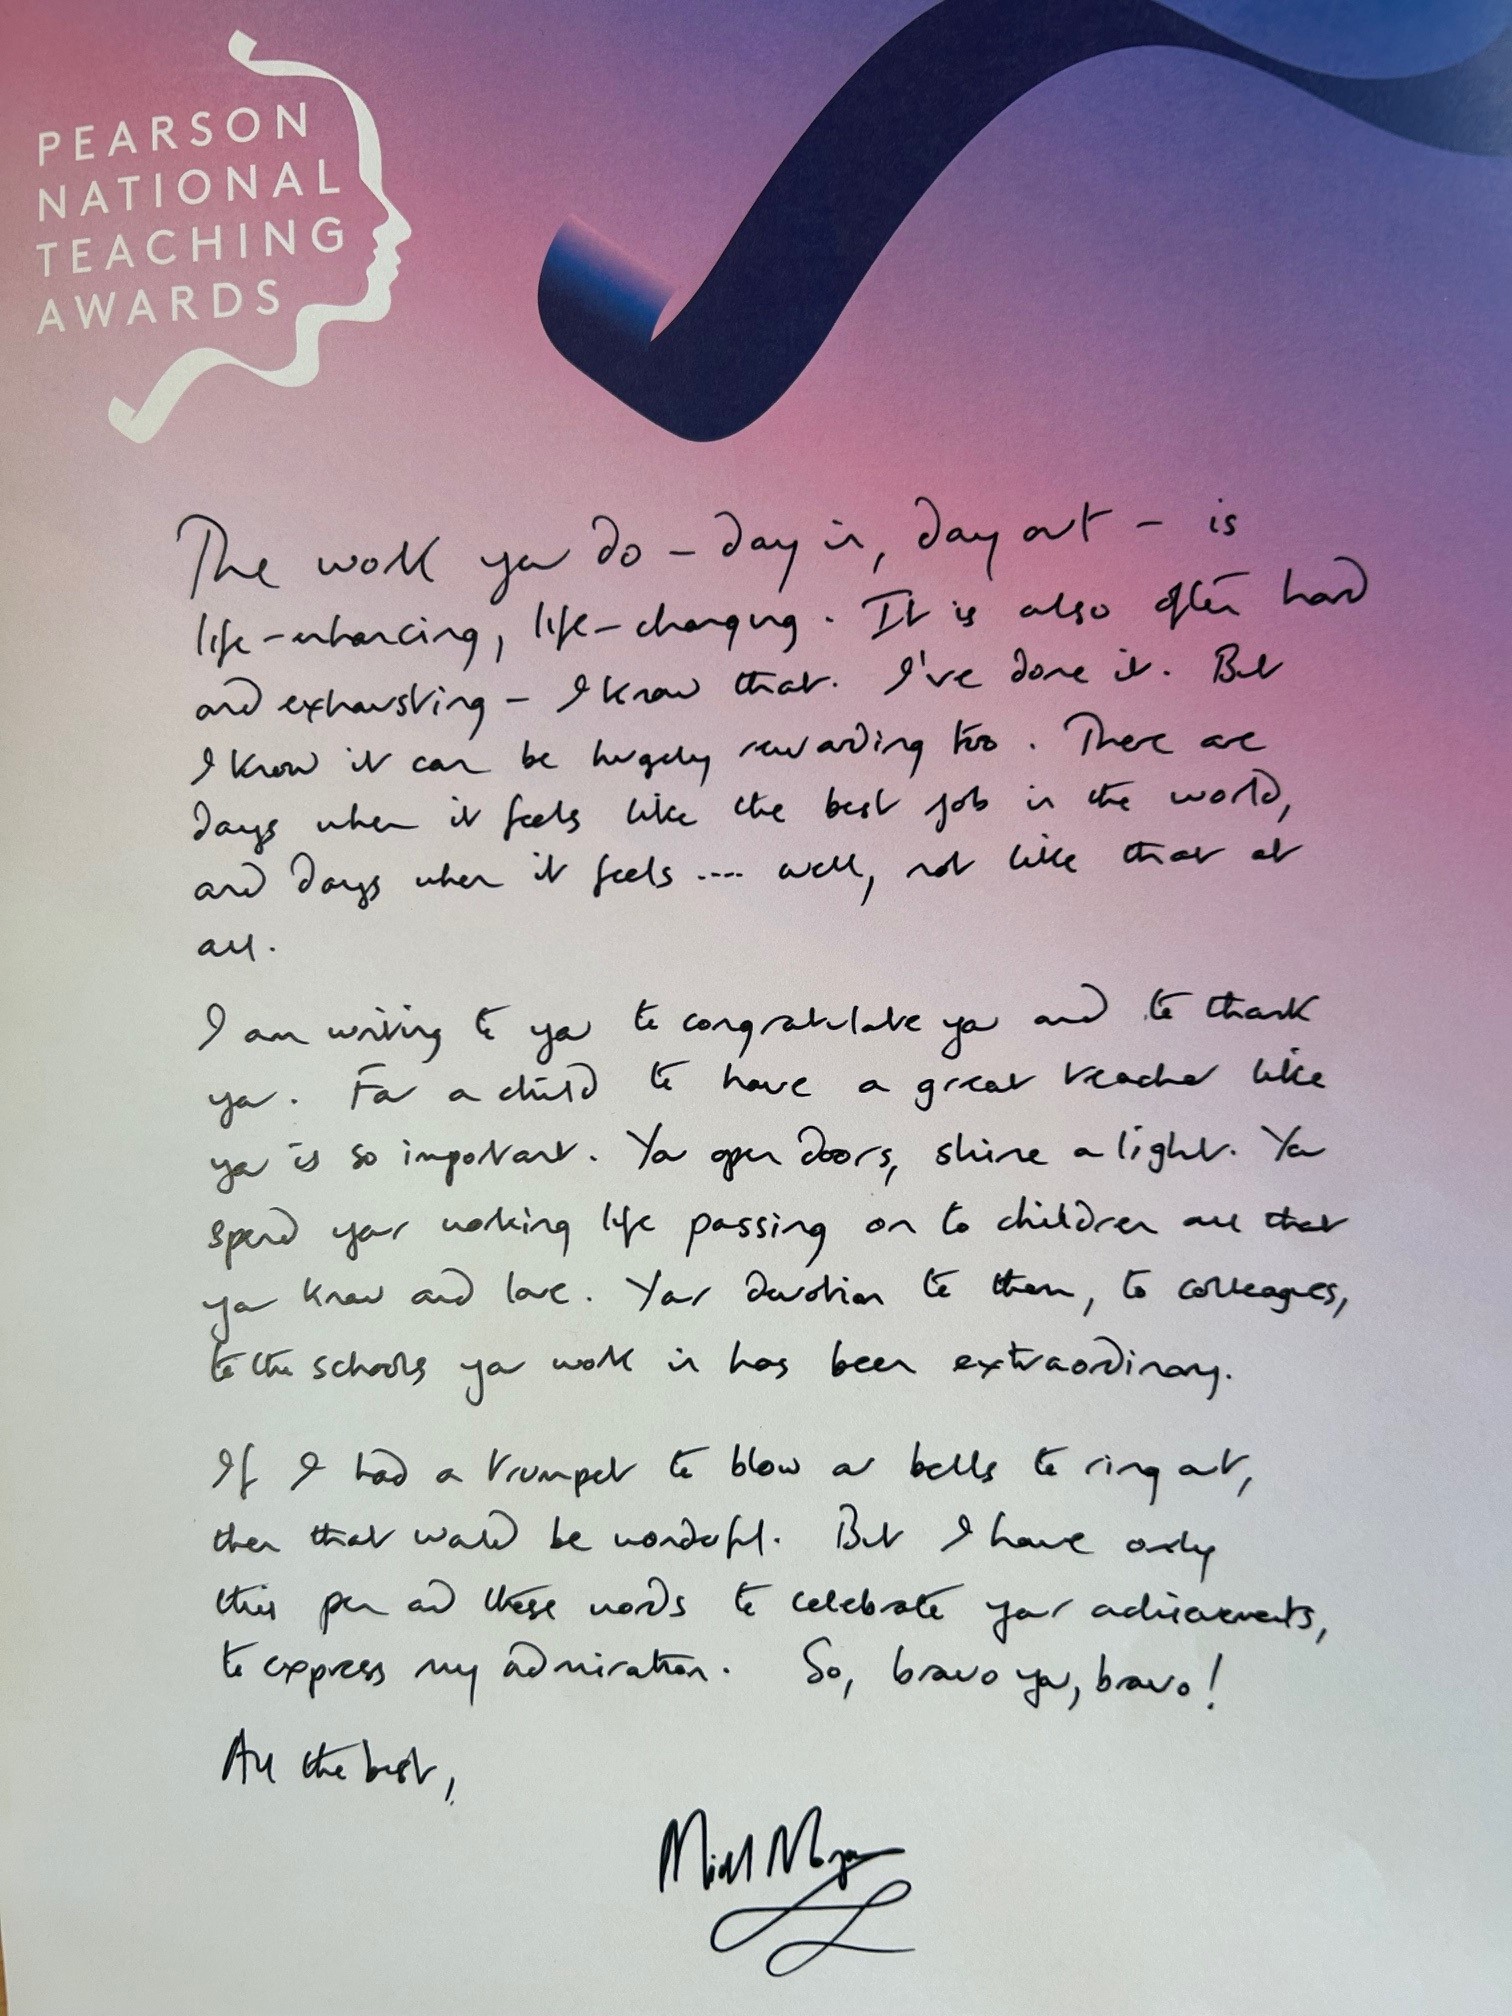 PEARSON
NATIONAL
TEACHING
AWARDS
The work you do – day in, day out – is
life-enhancing, life-changing. It is also often hard
and exhausting – I know that. I've done it. But
I know it can be hugely rewarding too. There are
days when it feels like the best job in the world,
and days when it feels .... well, not like that at
all.
I am writing to you to congratulate you and to thank
you. For a child to have a great teacher like
you is so important. You open doors, shine a light. You
spend your working life passing on to children all that
you know and love. Your devotion to them, to colleagues,
to the schools you work in has been extraordinary.
If I had a trumpet to blow or bells to ring out,
then that would be wonderful. But I have only
this pen and these words to celebrate your achievements,
to express my admiration. So, bravo you, bravo!
All the best,
Michael Morpurgo